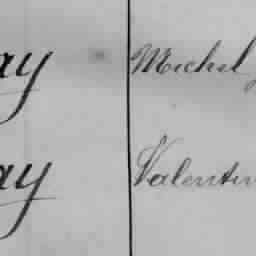 ay Michel
ay Valentin